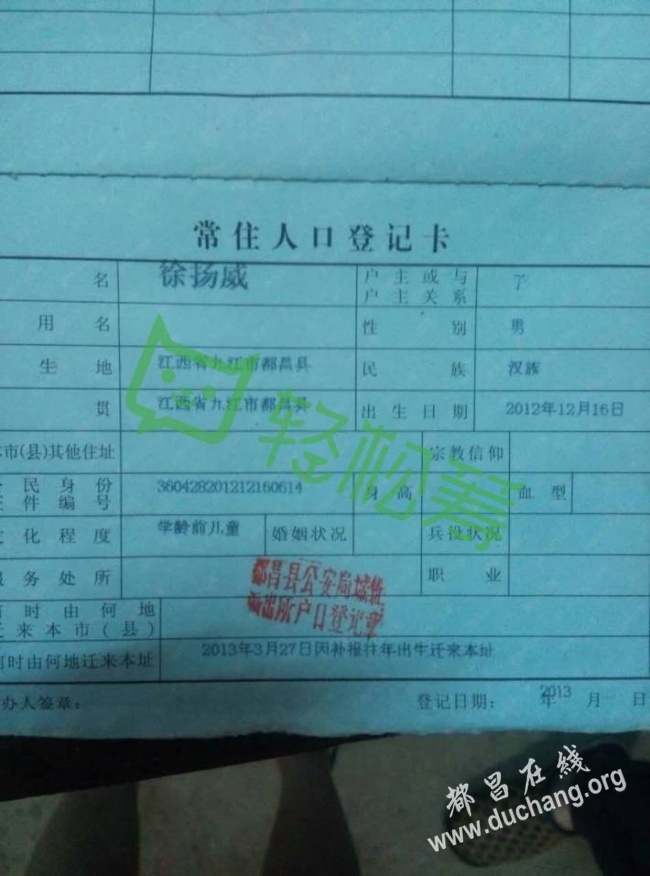 常住人口登记卡
名 徐扬威 户主或与户主关系 子
用名 性别 男
生地 江西省九江市都昌县 民族 汉族
贯 江西省九江市都昌县 出生日期 2012年12月16日
市(县)其他住址 宗教信仰
民身份证件编号 360428201212160614 身高 血型
化程度 学龄前儿童 婚姻状况 兵役状况
服务处所 职业
都昌县公安局
派出所户口登记章
时由何地迁来本市(县)
何时由何地迁来本址 2013年3月27日因补报往年出生迁来本址
办人签章: 登记日期: 2013年 月 日
轻松筹
都昌在线
www.duchang.org